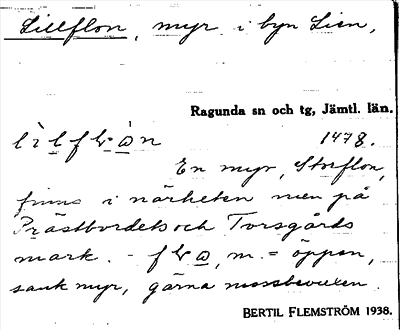 Lillflon, myr i byn Lien,
Ragunda sn och tg, Jämtl. län.
1478.
En myr, Storflon,
finns i närheten men på
Prästbordets och Torsgårds
mark. - flo, m. = öppen,
sank myr, gärna mossbevuxen.
BERTIL FLEMSTRÖM 1938.